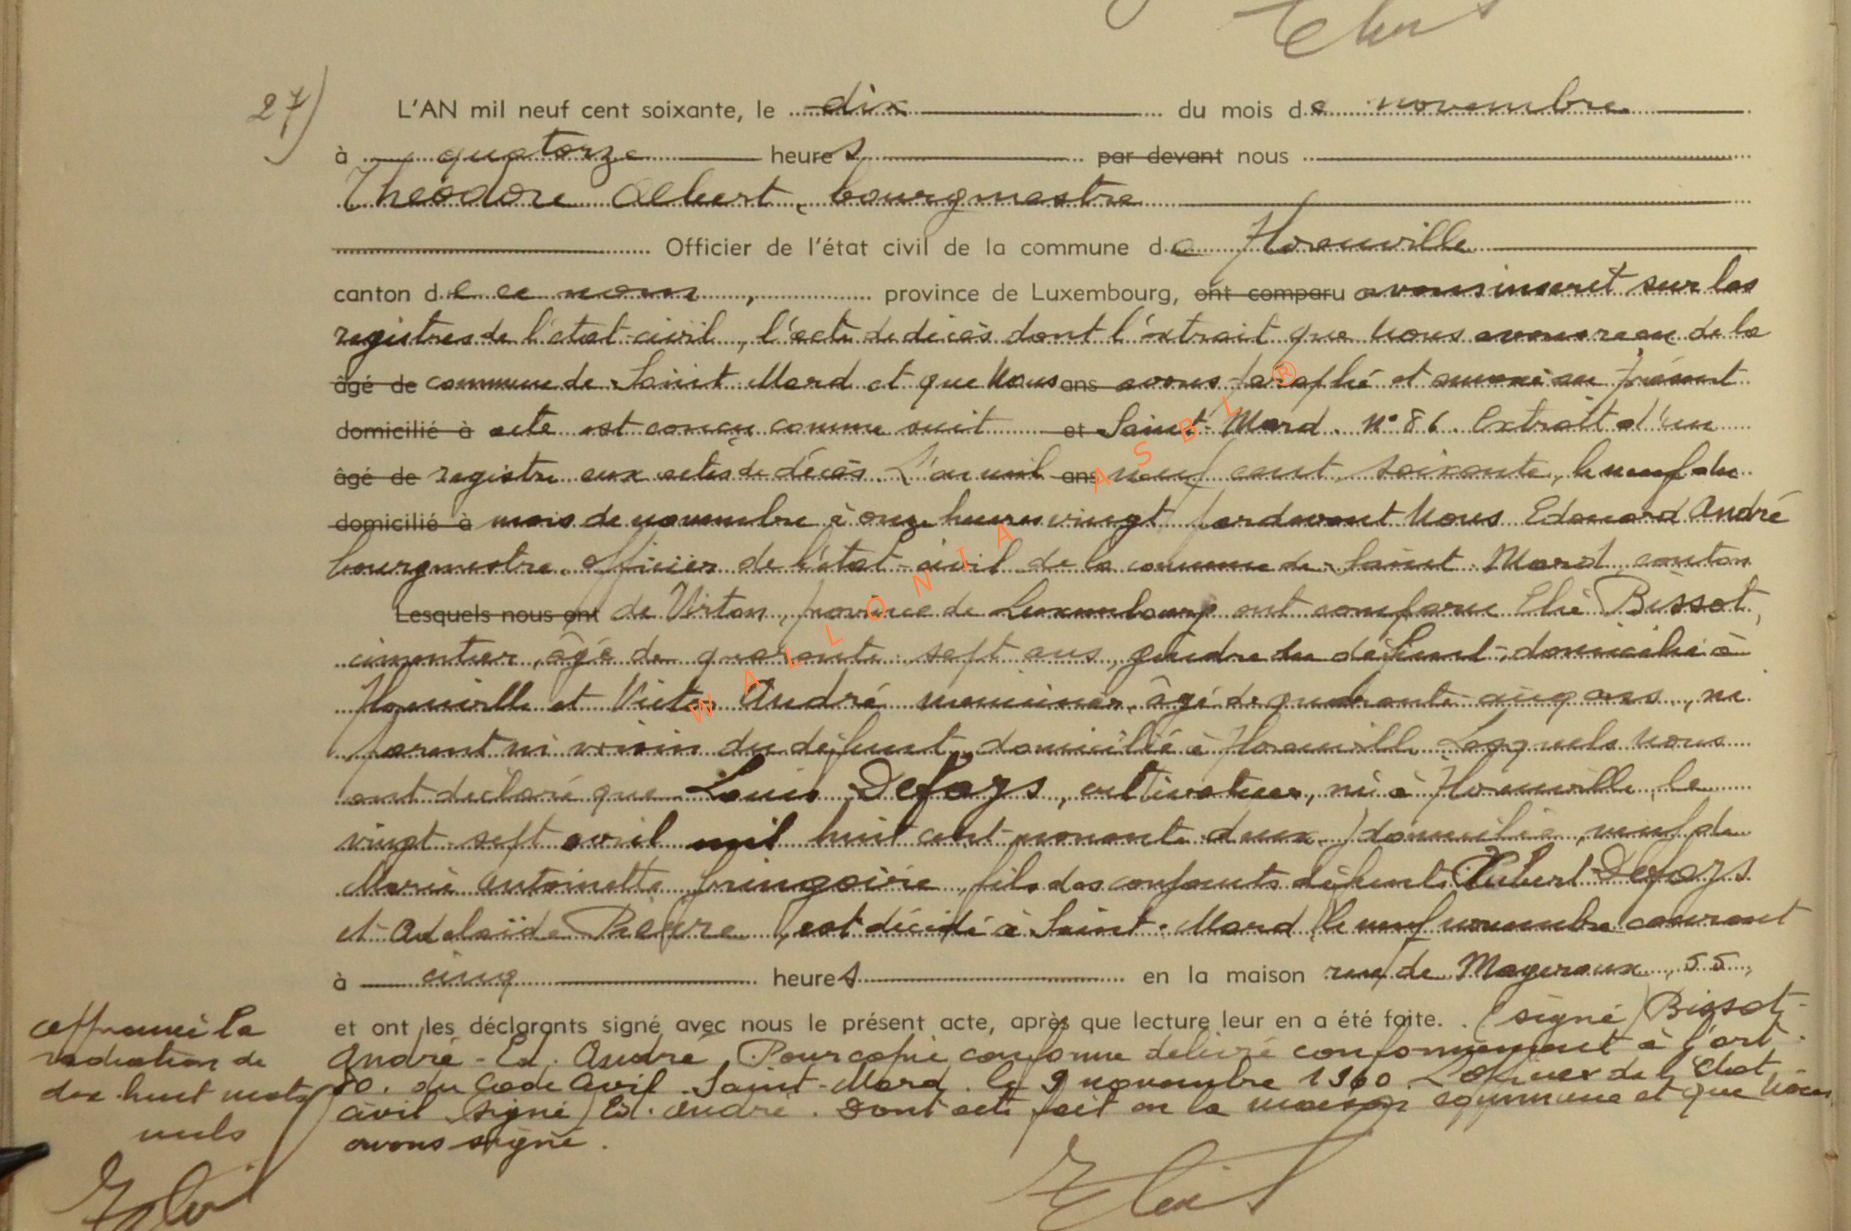 27)
L'AN mil neuf cent soixante, le dix du mois de novembre
à quatorze heures par devant nous
Théodore Albert, bourgmestre
Officier de l'état civil de la commune de Florenville
canton de ce nom, province de Luxembourg, ont comparu avons inscrit sur les
registres de l'état-civil, l'acte de décès dont l'extrait que Nous avons reçu de la
âgé de commune de Saint-Mard et que Nous ans avons paraphé et annexé au présent
domicilié à acte est conçu comme suit et Saint-Mard. N° 86. Extrait d'un
âgé de registre aux actes de décès. L'an mil ans neuf cent soixante, le neuf du
domicilié à mois de novembre à onze heures vingt pardevant Nous Edouard André
bourgmestre officier de l'état-civil de la commune de Saint-Mard, canton
Lesquels nous ont de Virton, province de Luxembourg ont comparu Elie Bissot,
cimentier, âgé de quarante-sept ans, gendre du défunt, domicilié à
Florenville et Victor André menuisier, âgé de quarante-cinq ans, ni
parent ni voisin du défunt, domicilié à Florenville. Lesquels nous
ont déclaré que Louis Defays, cultivateur, né à Florenville, le
vingt-sept avril mil huit cent nonante-deux, y domicilié, veuf de
Marie Antoinette Gringoire, fils des conjoints défunts Hubert Defays
et Adelaïde, est décédé à Saint-Mard, le neuf novembre courant
à cinq heures en la maison rue de Mageroux, 55,
et ont les déclarants signé avec nous le présent acte, après que lecture leur en a été faite. (signé) Bissot-
André - Ed. André. Pour copie conforme délivré conformément à l'art.
80. du Code Civil. Saint-Mard. le 9 novembre 1960. L'officier de l'Etat
civil (signé) Ed. André. Dont acte fait en la maison communale et que Nous
avons signé.
Approuvé la
radiation de
dix-huit mots
nuls
WALLONIA ASBL ®